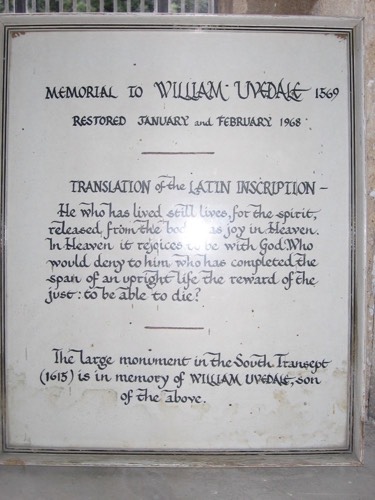 MEMORIAL TO WILLIAM UVEDALE 1569
RESTORED JANUARY and FEBRUARY 1968
TRANSLATION of the LATIN INSCRIPTION –
He who has lived still lives, for the spirit,
released from the body has joy in Heaven.
In Heaven it rejoices to be with God. Who
would deny to him who has completed the
span of an upright life the reward of the
just: to be able to die?
The large monument in the South Transept
(1615) is in memory of WILLIAM UVEDALE, son
of the above.